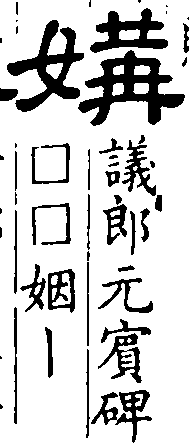 媾
議郎元賓碑
□□姻｜